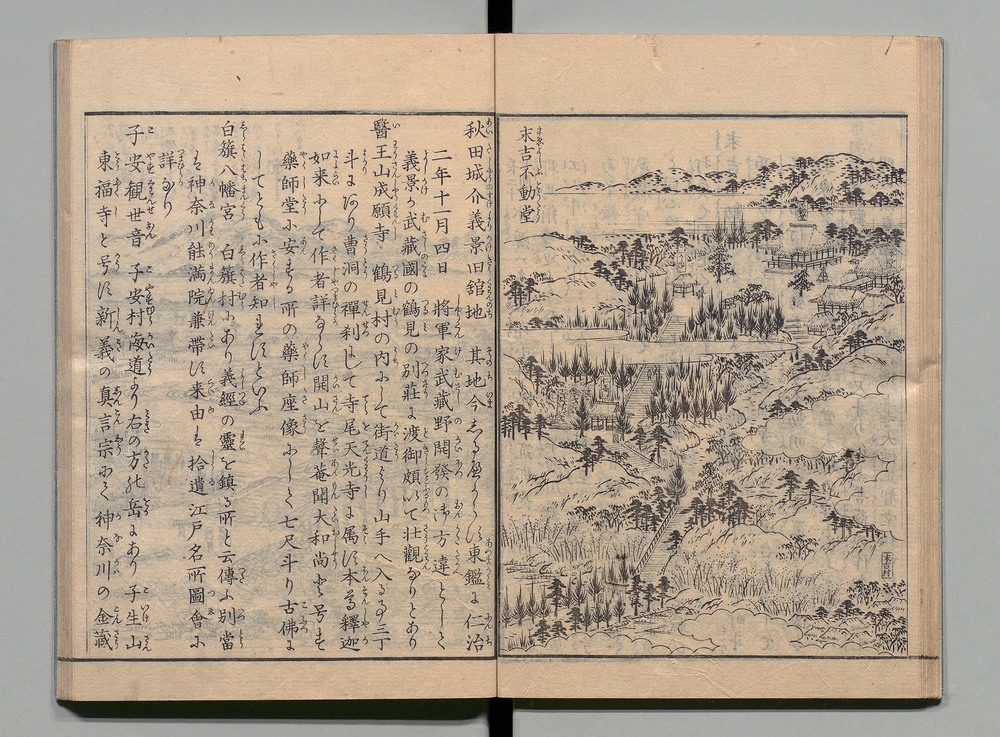 末吉不動堂
末吉村
秋田城介義景旧舘地 其地今志る屋しらに東鑑に仁治
二年十一月四日 將軍家武藏野開發の御方違として
義景か武藏國の鶴見の別莊に渡御頗いて壮觀なりとあり
醫王山成願寺 鶴見村の内にして街道より山手へ入る事二丁
斗にあり曹洞の禪利にして寺尾天光寺に属に本尊釋迦
如来にして作者詳ならに開山を聲菴開大和尚と号す
藥師堂に安する所の藥師座像にして七尺斗り古佛に
してとも小作者知れにといふ
白籏八幡宮 白籏村にあり義經の靈を鎮る所と云傳ふ別當
は神奈川能満院兼帯に来由は拾遺江戸名所圖會に
詳なり
子安觀世音 子安村海道より右の方の岳にあり子生山
東福寺と号に新義の真言宗にて神奈川の金藏